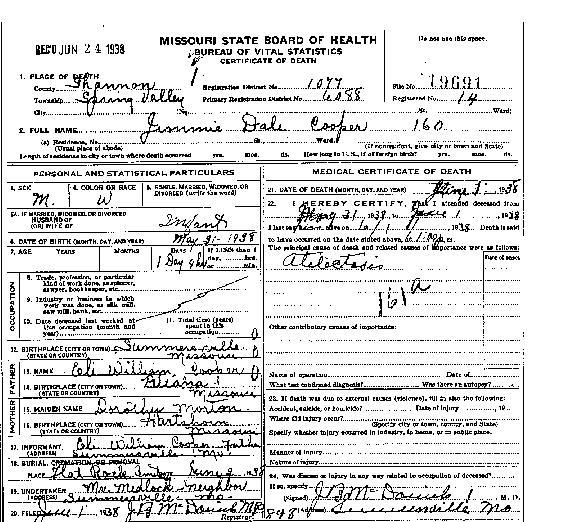 MISSOURI STATE BOARD OF HEALTH
BUREAU OF VITAL STATISTICS
CERTIFICATE OF DEATH
Do not use this space.
REC'D JUN 24 1938
1. PLACE OF DEATH
County Shannon
Registration District No. 1077
File No. 19691
Township Spring Valley
Primary Registration District No. 6088
Registered No. 14
City
St.
Ward)
2. FULL NAME Jimmie Dale Cooper 160
(a) Residence, No.
St.
Ward.
(Usual place of abode)
(If nonresident, give city or town and State)
Length of residence in city or town where death occurred yrs. mos. ds. How long in U. S., if of foreign birth? yrs. mos. ds.
PERSONAL AND STATISTICAL PARTICULARS
3. SEX M.
4. COLOR OR RACE W
5. SINGLE, MARRIED, WIDOWED, OR DIVORCED (write the word)
5A. IF MARRIED, WIDOWED, OR DIVORCED
HUSBAND OF
(OR) WIFE OF
Infant
6. DATE OF BIRTH (MONTH, DAY, AND YEAR) May 31-1938
7. AGE YEARS MONTHS DAYS
1 Day
8. Trade, profession, or particular kind of work done, as spinner, sawyer, bookkeeper, etc.
9. Industry or business in which work was done, as silk mill, saw mill, bank, etc.
10. Date deceased last worked at this occupation (month and year)
11. Total time (years) spent in this occupation
OCCUPATION
12. BIRTHPLACE (CITY OR TOWN) Summersville
(STATE OR COUNTRY) Missouri
FATHER
13. NAME Eli William Cooper
14. BIRTHPLACE (CITY OR TOWN)
(STATE OR COUNTRY) Missouri
MOTHER
15. MAIDEN NAME Dorothy Morton
16. BIRTHPLACE (CITY OR TOWN) Hartshorn
(STATE OR COUNTRY) Missouri
17. INFORMANT Eli William Cooper father
(ADDRESS) Summersville Mo
18. BURIAL, CREMATION, OR REMOVAL
PLACE Flat Rock
19. UNDERTAKER Mr. Medlock-neighbor
(ADDRESS) Summersville Mo.
20. FILED
Registrar
MEDICAL CERTIFICATE OF DEATH
21. DATE OF DEATH (MONTH, DAY, AND YEAR) June 1- 1938
22. I HEREBY CERTIFY, That I attended deceased from
May 31 1938 June 1 1938
I last saw
alive on 6/1 1938 Death is said
to have occurred on the date stated above, at
The principal cause of death and related causes of importance were as follows:
Date of onset
Atilectasis
161a
Other contributory causes of importance:
Name of operation Date of
What test confirmed diagnosis? Was there an autopsy?
23. If death was due to external causes (violence), fill in also the following:
Accident, suicide, or homicide? Date of injury 19
Where did injury occur?
(Specify city or town, county, and State)
Specify whether injury occurred in industry, in home, or in public place.
Manner of injury
Nature of injury
24. Was disease or injury in any way related to occupation of deceased?
If so, specify
(Signed) M. D.
(Address) Summersville Mo